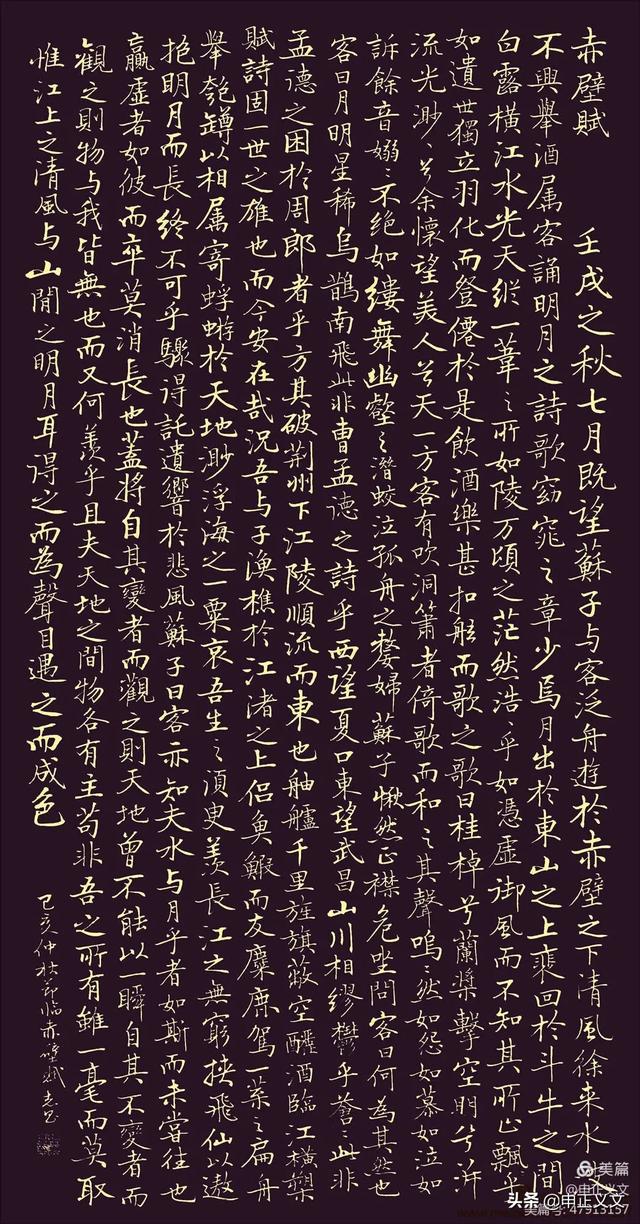 赤壁賦 壬戌之秋七月既望蘇子与客泛舟遊於赤壁之下清風徐来水
不興舉酒属客誦明月之詩歌窈窕〻章少焉月出於東山之上裴回於斗牛之間
白露橫江水光天縱一葦〻所如陵万頃之茫然浩〻乎如憑虛御風而不知其所止飄乎
如遺世獨立羽化而登僊於是飲酒樂甚扣舷而歌之歌曰桂棹兮蘭槳擊空明兮泝
流光渺〻兮余懷望美人兮天一方客有吹洞簫者倚歌而和〻其聲嗚〻然如怨如慕如泣如
訴餘音嫋〻不绝如縷舞幽壑〻潛蛟泣孤舟之嫠婦蘇子愀然正襟危坐問客曰何為其然也
客曰月明星稀烏鵲南飛此非曹孟德之詩乎西望夏口東望武昌山川相繆鬱乎蒼〻此非
孟德之困於周郎者乎方其破荆州下江陵順流而東也舳艫千里旌旗蔽空釃酒臨江橫槊
賦詩固一世之雄也而今安在哉況吾与子漁樵於江渚之上侣魚鰕而友麋鹿駕一葉之扁舟
舉匏罇以相属寄蜉蝣於天地渺浮海之一粟哀吾生〻須臾羨長江之無窮挾飛仙以遨
抱明月而長終不可乎驟得託遺響於悲風蘇子曰客亦知夫水与月乎者如斯而未嘗往也
贏虛者如彼而卒莫消長也蓋將自其變者而觀之則天地曾不能以一瞬自其不變者而
觀之則物与我皆無也而又何羨乎且夫天地之間物各有主苟非吾之所有雖一毫而莫取
惟江上之清風与山間之明月耳得之而為聲目遇之而成色
己亥仲秋節临赤壁賦
美篇
美篇号: 47913157
头条 @申正义文